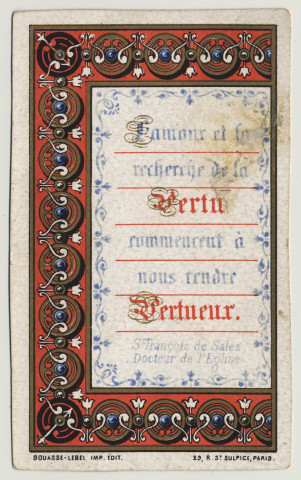 L'amour et la
recherche de la
Vertu
commencent à
nous rendre
Vertueux.
St François de Sales
Docteur de l'Eglise
BOUASSE-LEBEL IMP. ÉDIT.
29, R. ST SULPICE, PARIS.